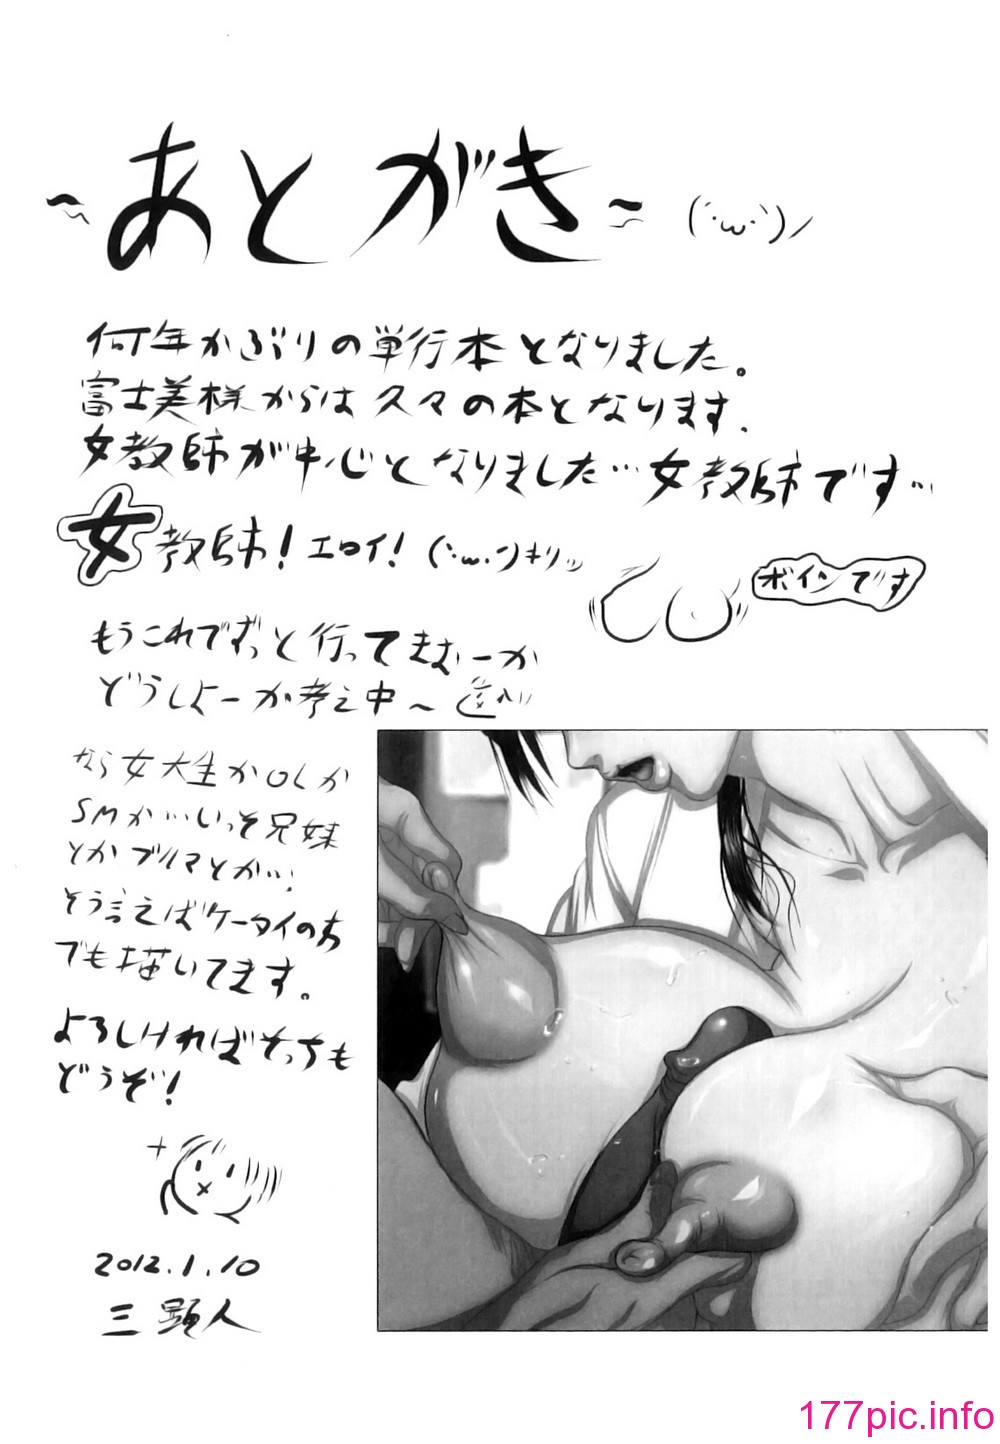 ～あとがき～ (´･ω･`)ノ
何年かぶりの単行本となりました。
富士美様からは久々の本となります。
女教師が中心となりました…女教師です…
女教師！エロイ！(`･ω･´)キリッ
ボインです
もうこれでずっと行ってきむーか
どうしよーか考え中～
なら女大生かOLか
SMか…いっそ兄妹
とかブルマとか…！
そう言えばケータイの方
でも描いてます。
よろしければそっちも
どうぞ！
2012.1.10
三顕人
177pic.info